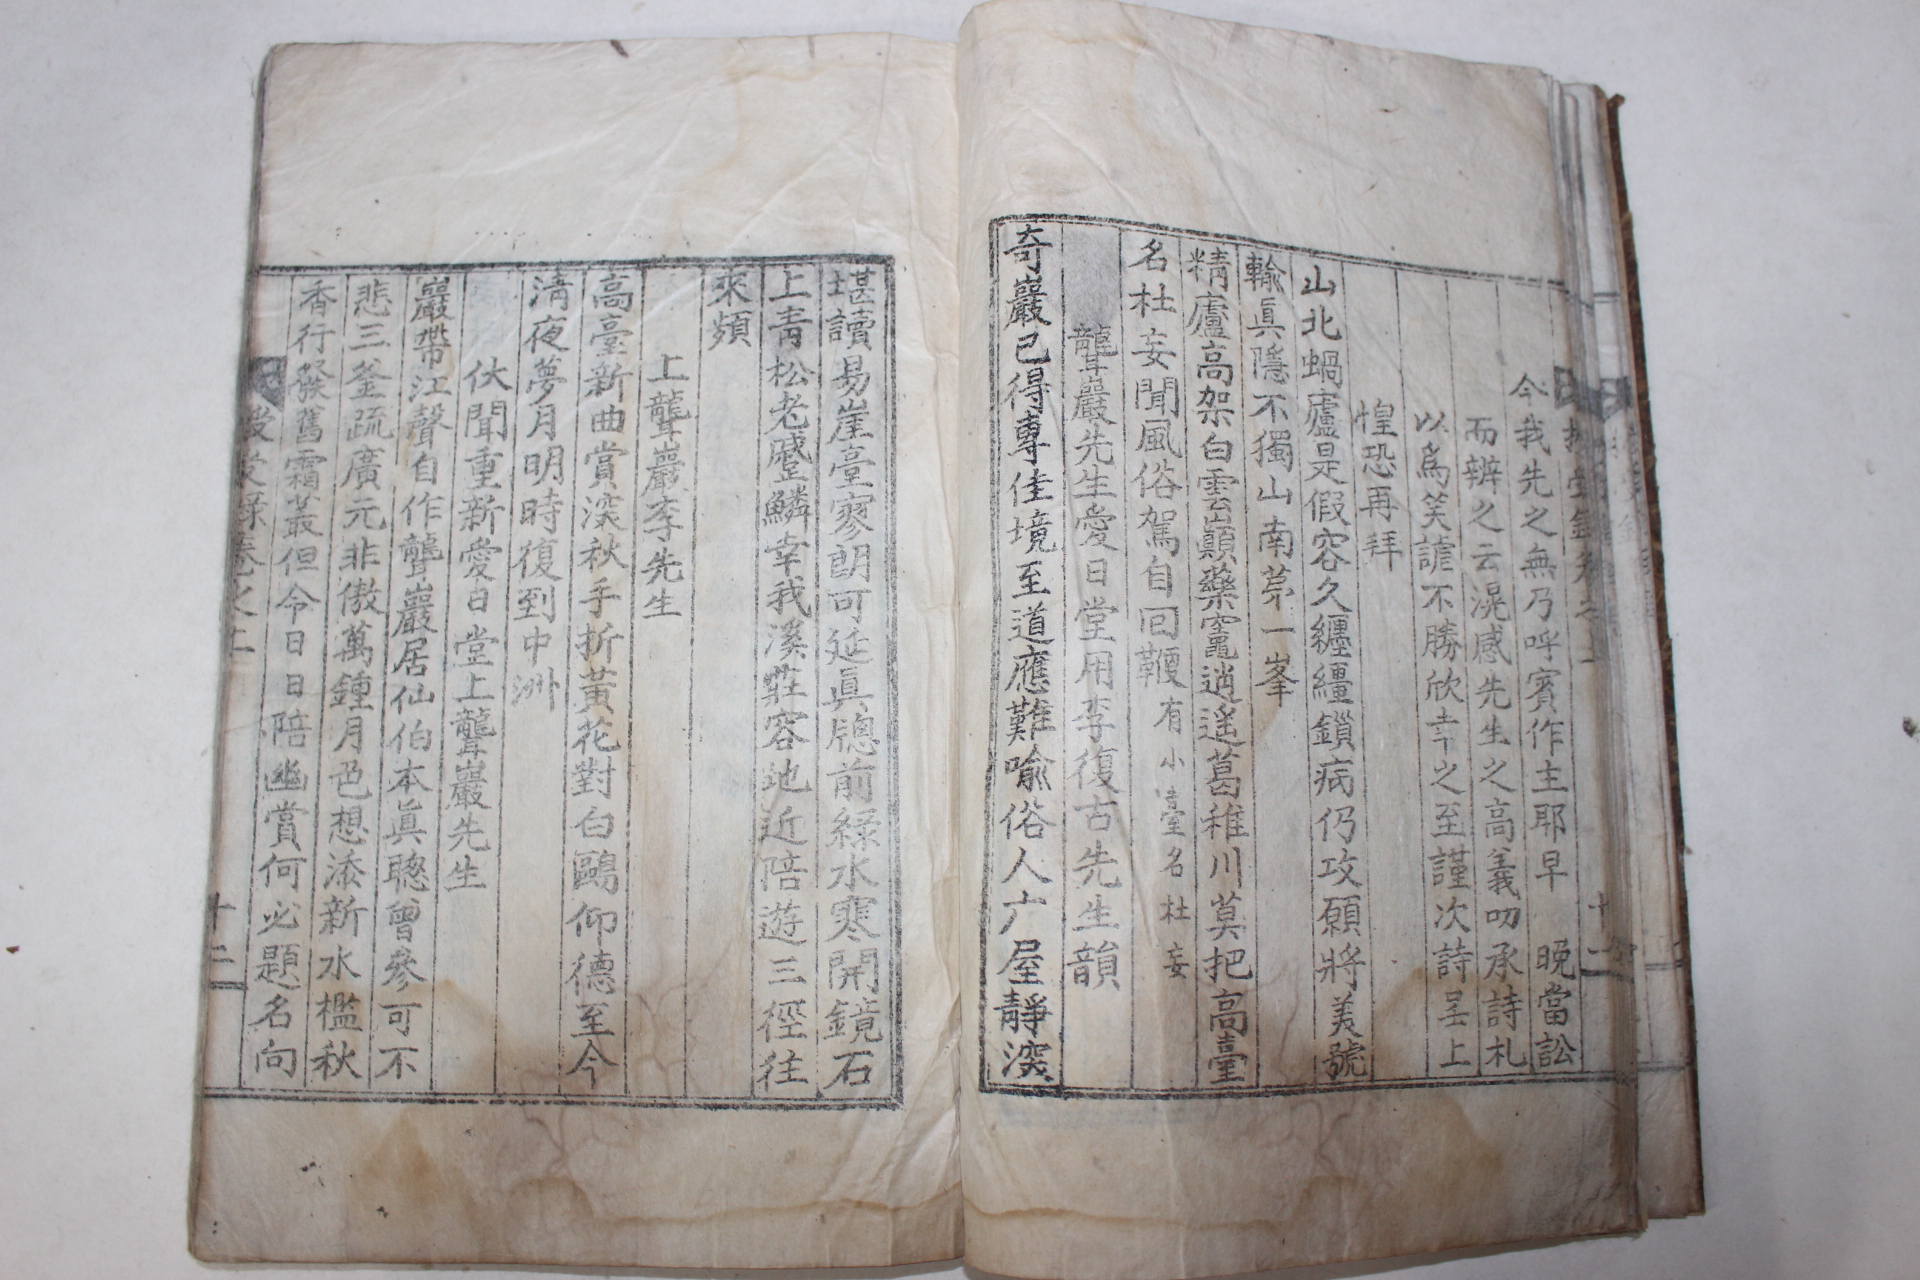 今我先之無乃呼賓作主耶早晚當訟
而辨之云滉感先生之高義叨承詩札
以爲笑謔不勝欣幸之至謹次詩呈上
惶恐再拜
山北蝸廬是假容久纏繮鎖病仍攻願將美號
輸眞隱不獨山南第一峯
精廬高架白雲巓藥竈逍遙葛稚川莫把高臺
名杜妄聞風俗駕自回鞭有小臺名杜妄
聾巖先生愛日堂用李復古先生韻
奇巖已得專佳境至道應難喩俗人广屋靜深
堪讀易崖臺寥朗可延眞牕前綠水寒開鏡石
上靑松老蹙鱗幸我溪莊容地近陪遊三徑往
來頻
上聾巖李先生
高臺新曲賞深秋手折黃花對白鷗仰德至今
淸夜夢月明時復到中洲
伏聞重新愛日堂上聾巖先生
巖帶江聲自作聾巖居仙伯本眞聰曾參可不
悲三釜疏廣元非傲萬鍾月色想添新水檻秋
香行發舊霜叢但令日日陪幽賞何必題名向
十二